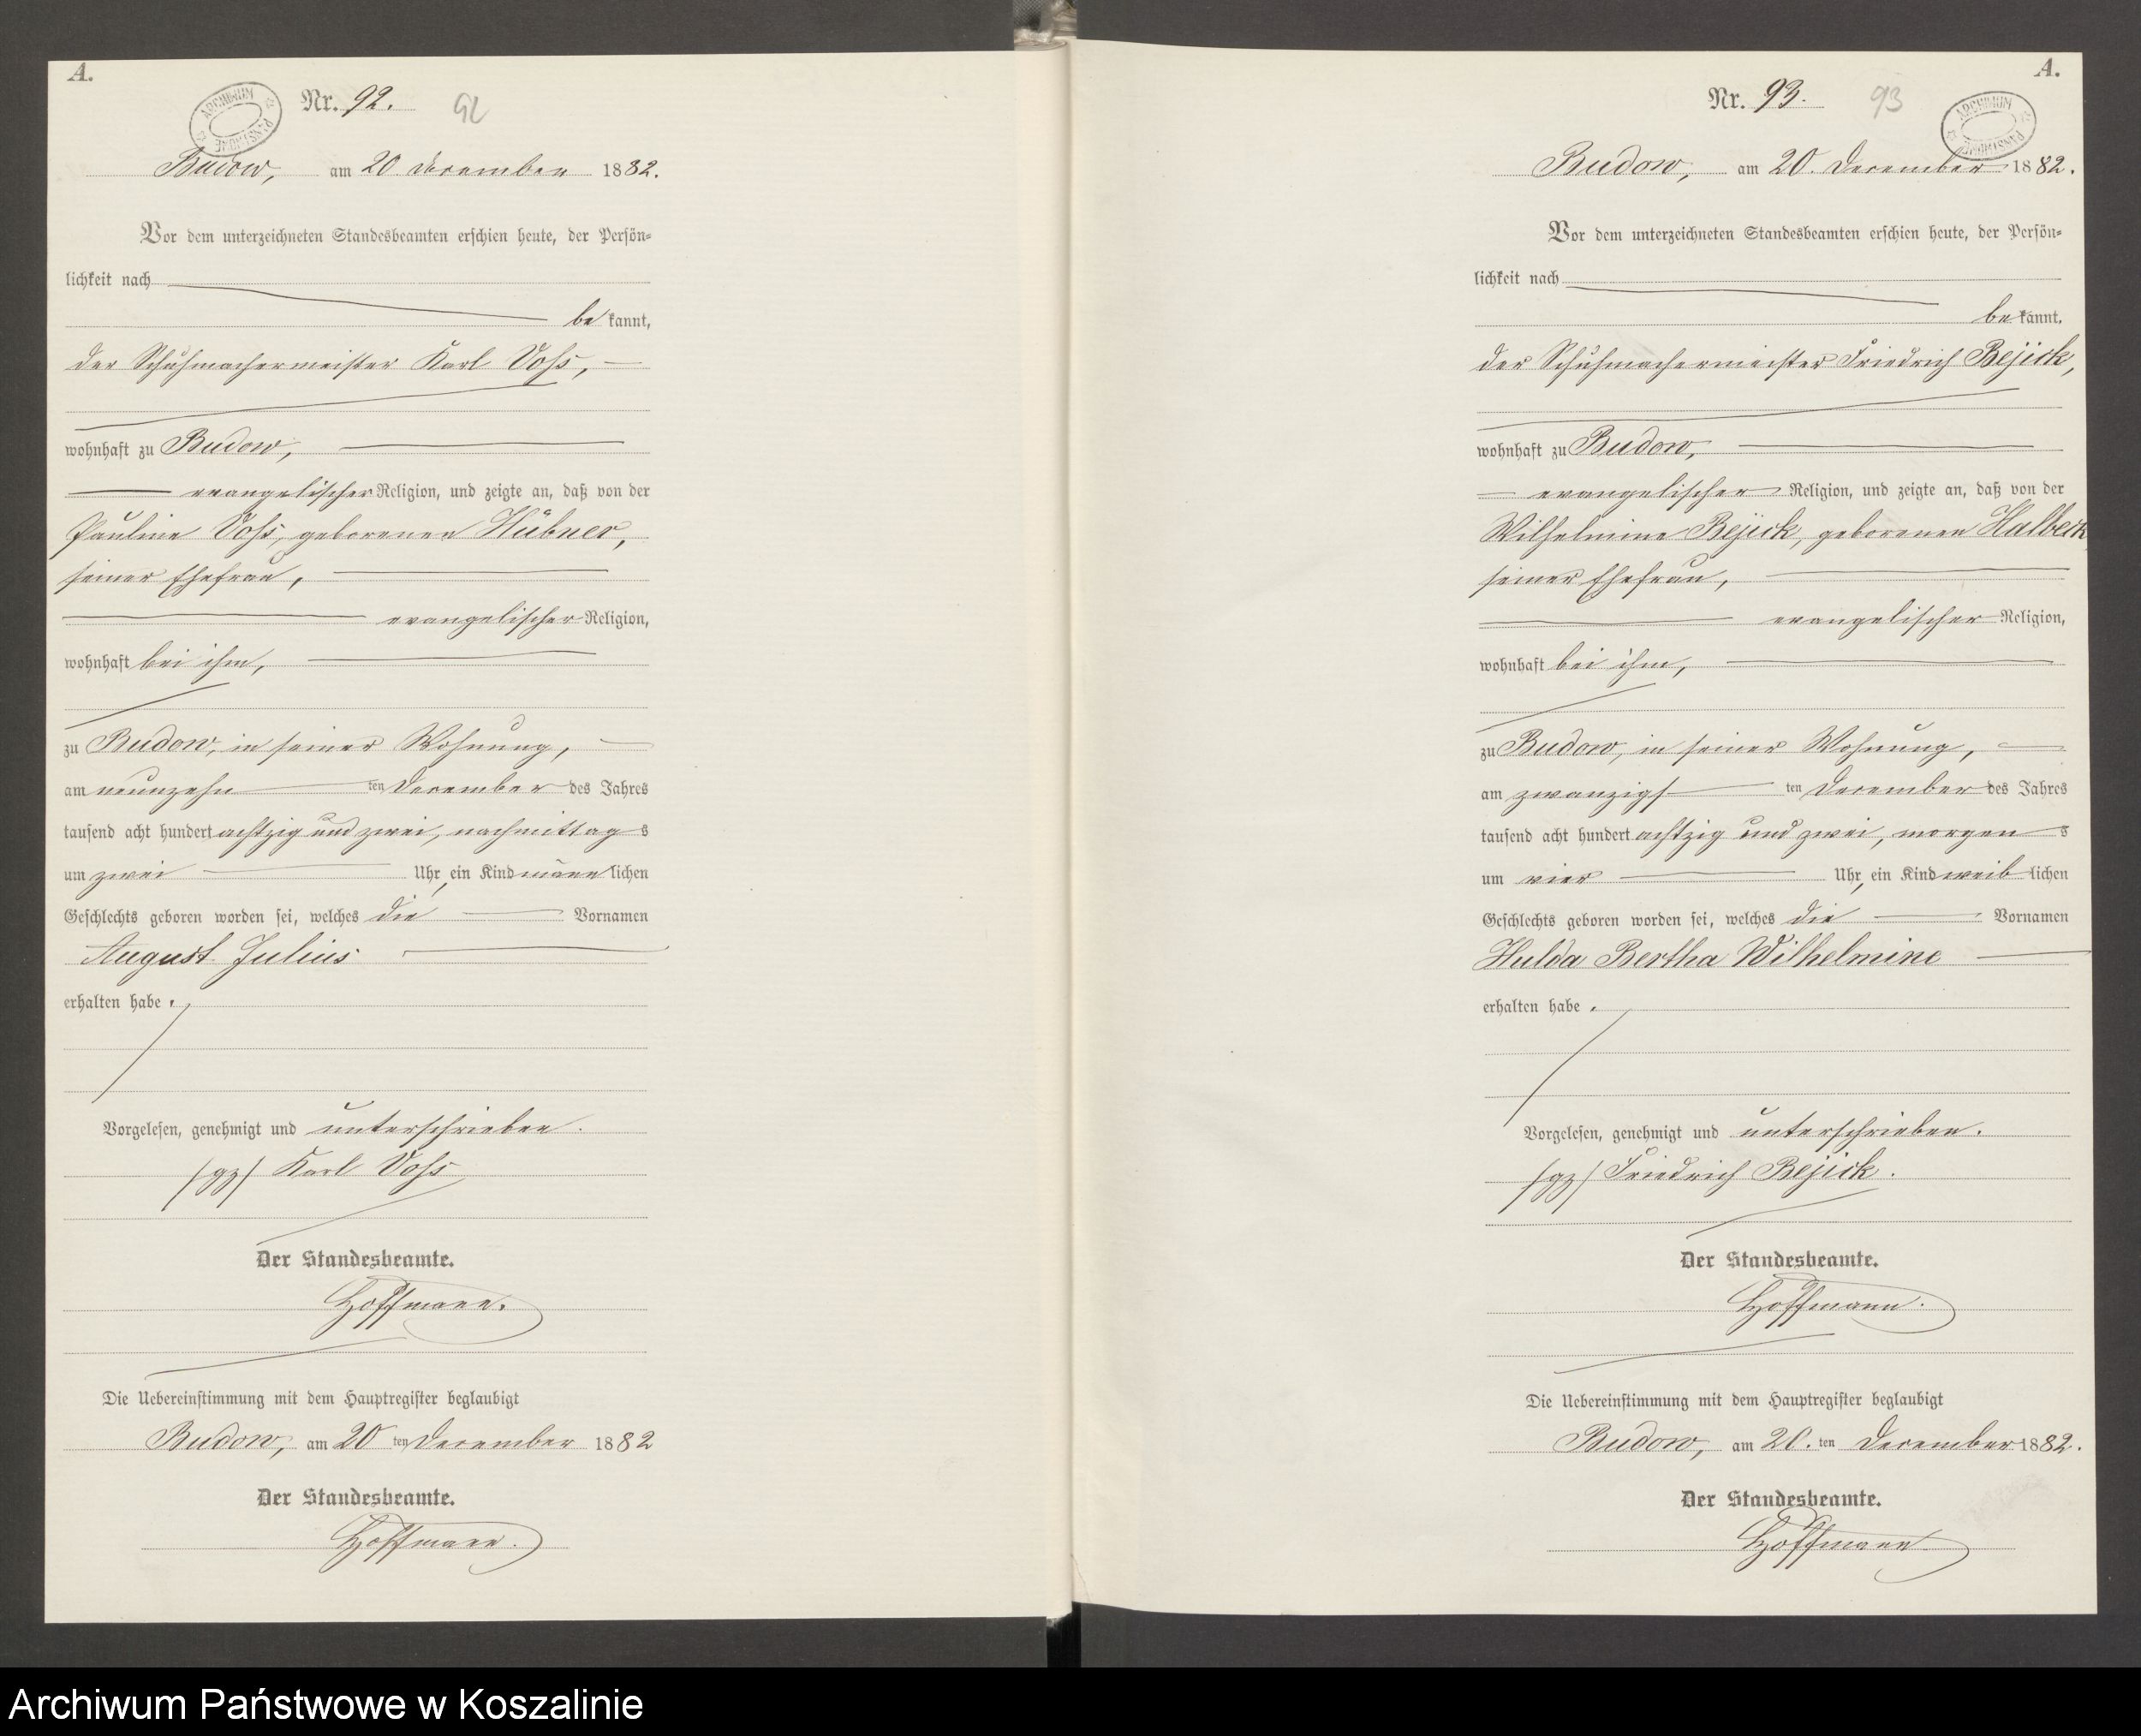 A.
ARCHIWUM PAŃSTWOWE
Nr. 92. 92
Budow, am 20 December 1882.
Vor dem unterzeichneten Standesbeamten erschien heute, der Persön=
lichkeit nach
bekannt,
der Schuhmachermeister Karl Voß,
wohnhaft zu Budow,
evangelischer Religion, und zeigte an, daß von der
Pauline Voß, geborenen Hübner,
seiner Ehefrau,
evangelischer Religion,
wohnhaft bei ihm,
zu Budow, in seiner Wohnung,
am neunzehn ten December des Jahres
tausend acht hundert achtzig und zwei, nachmittags
um zwei Uhr, ein Kind männlichen
Geschlechts geboren worden sei, welches die Vornamen
August Julius
erhalten habe.
Vorgelesen, genehmigt und unterschrieben.
/gz/ Karl Voß
Der Standesbeamte.
Hoffmann.
Die Uebereinstimmung mit dem Hauptregister beglaubigt
Budow, am 20 ten December 1882
Der Standesbeamte.
Hoffmann.
A.
Nr. 93. 93
ARCHIWUM PAŃSTWOWE
Budow, am 20. December 1882.
Vor dem unterzeichneten Standesbeamten erschien heute, der Persön=
lichkeit nach
bekannt,
der Schuhmachermeister Friedrich Bejick,
wohnhaft zu Budow,
evangelischer Religion, und zeigte an, daß von der
Wilhelmine Bejick, geborenen Halbeck
seiner Ehefrau,
evangelischer Religion,
wohnhaft bei ihm,
zu Budow, in seiner Wohnung,
am zwanzigs ten December des Jahres
tausend acht hundert achtzig und zwei, morgens
um vier Uhr, ein Kind weiblichen
Geschlechts geboren worden sei, welches die Vornamen
Hulda Bertha Wilhelmine
erhalten habe.
Vorgelesen, genehmigt und unterschrieben.
/gz/ Friedrich Bejick.
Der Standesbeamte.
Hoffmann.
Die Uebereinstimmung mit dem Hauptregister beglaubigt
Budow, am 20. ten December 1882.
Der Standesbeamte.
Hoffmann
Archiwum Państwowe w Koszalinie